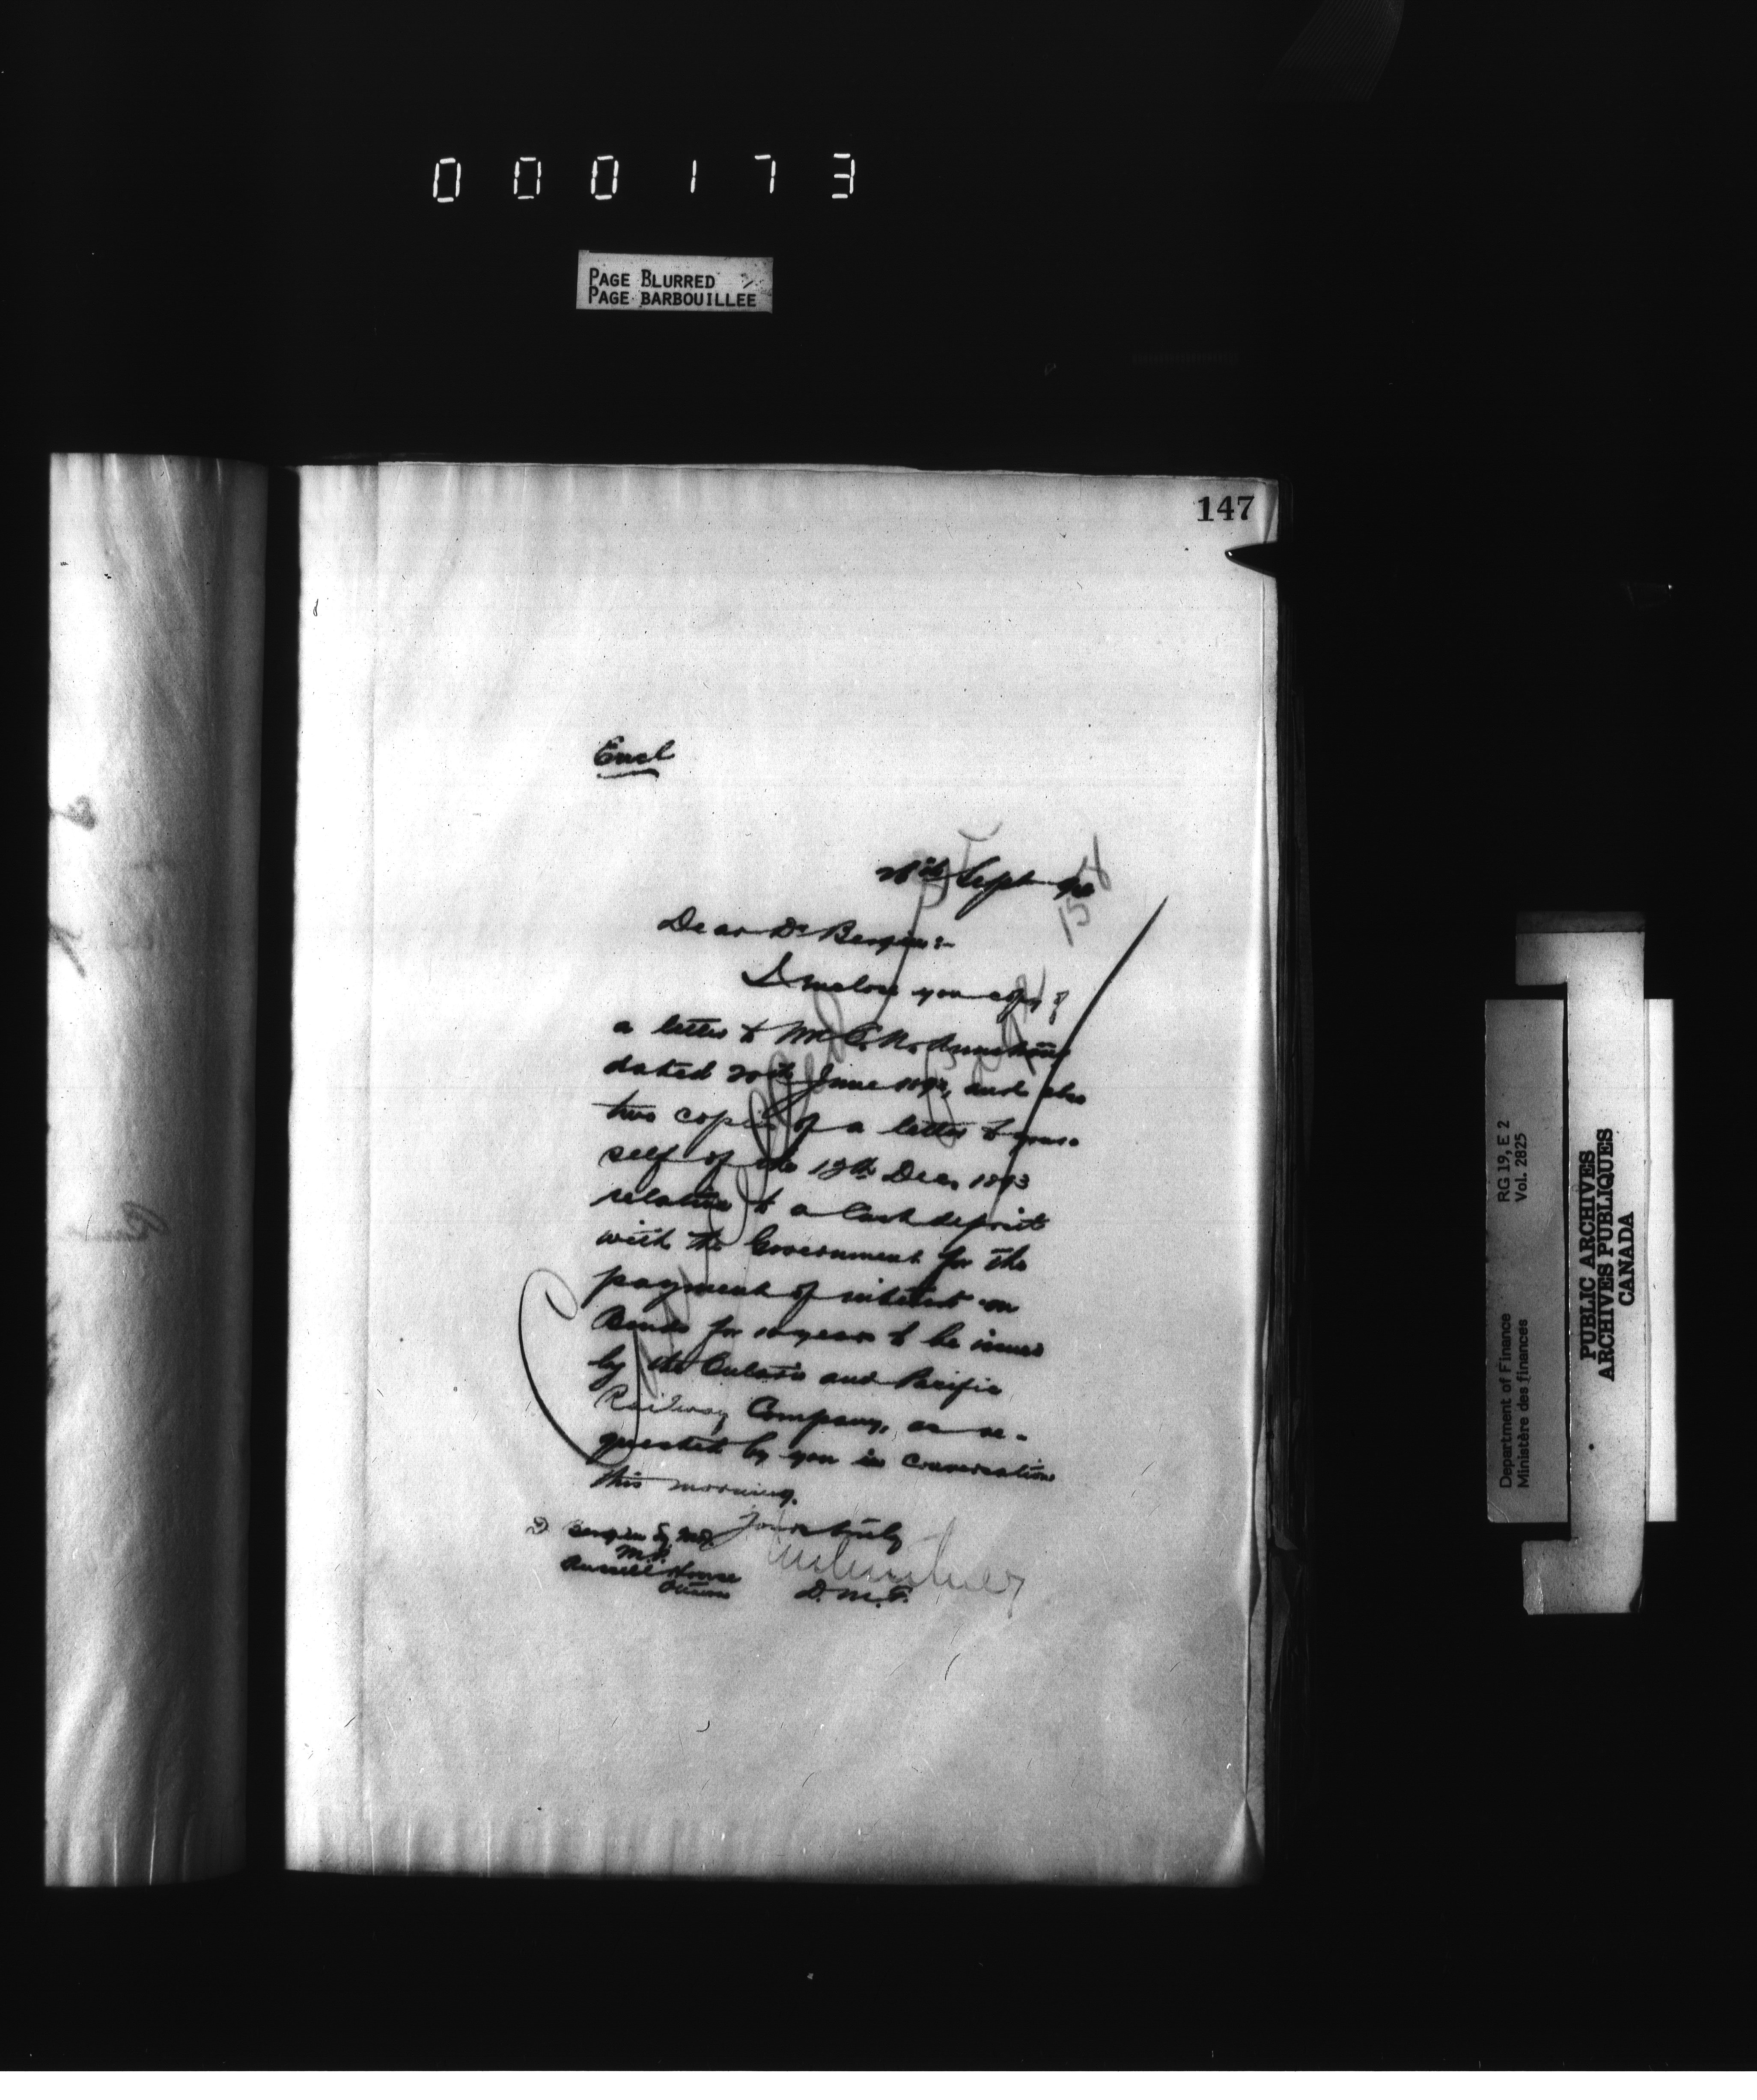 000173
PAGE BLURRED
PAGE BARBOUILLEE
147
Encl
Sept
Dear Dr Bergin:-
I inclose you copy of
a letter to Mr C. N. Armstrong
dated 20th June 1892, and also
two copies of a letter to your-
self of the 12th Dec, 1893
relative to a Cash deposit
with the Government for the
payment of interest on
Bonds for 10 years to be issued
by the Ontario and Pacific
Railway Company, as re-
quested by you in conversation
this morning.
Yours truly
D. M. F.
D. Bergin Esq. M.D.
M.P.
Russell House
Ottawa
RG 19, E 2
Vol. 2825
Department of Finance
Ministère des finances
PUBLIC ARCHIVES
ARCHIVES PUBLIQUES
CANADA